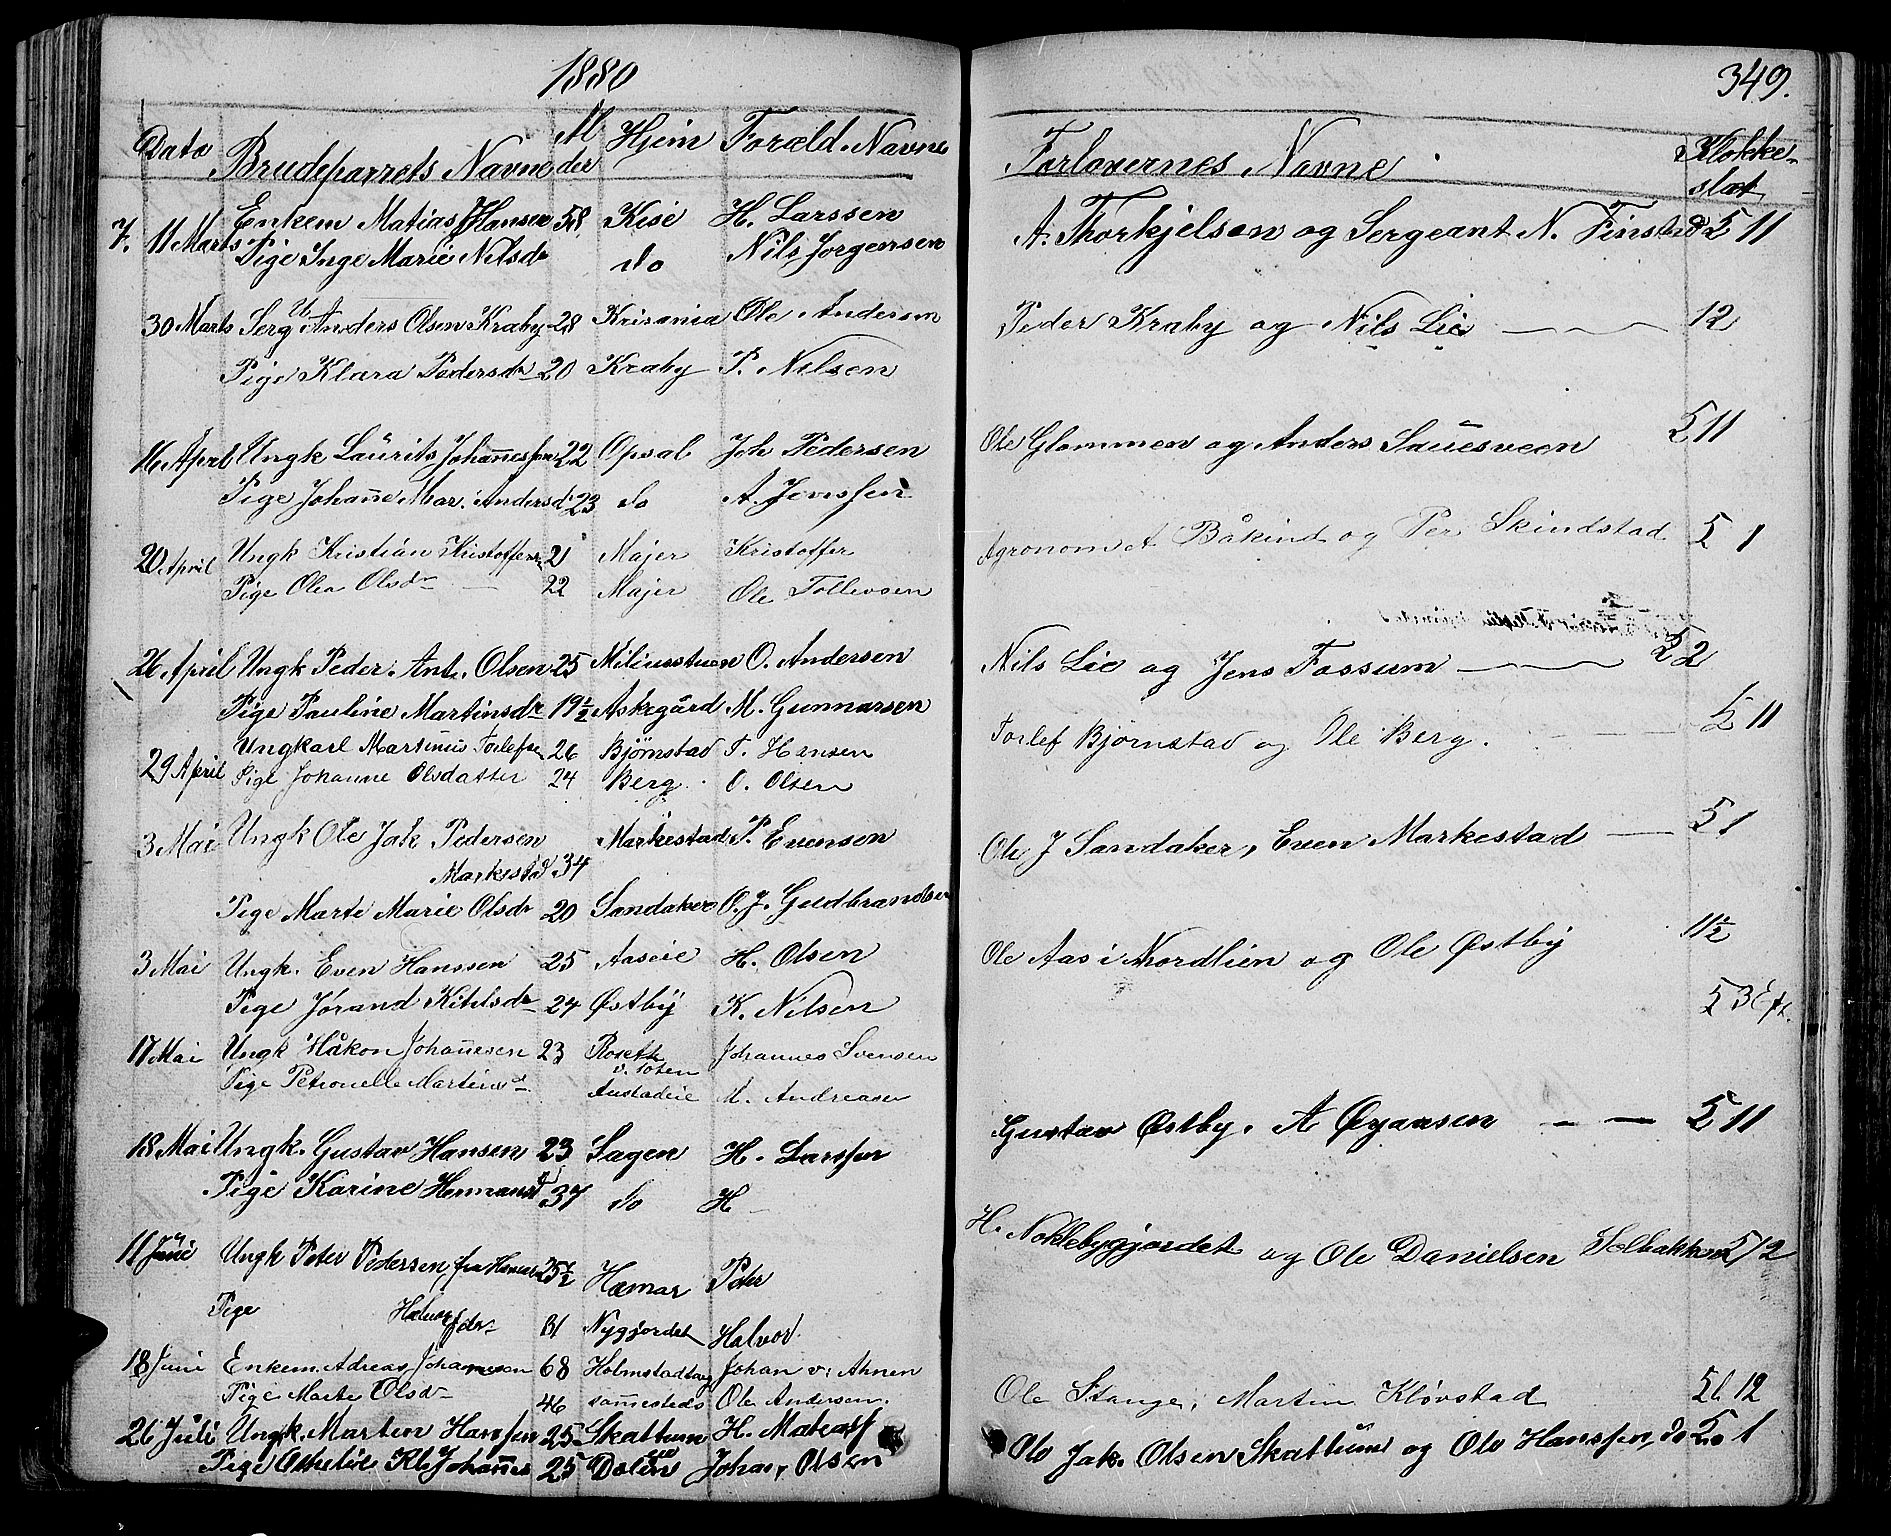 1880
Dato Brudeparrets Navne Alder Hjem Foræld. Navne
7. 11 Marts Enkem Matias Hansen 58 Kise H. Larssen
Pige Inge Marie Nilsdr do Nils Jørgensen
30 Marts Serg U Anders Olsen Kraby 28 Krisania Ole Andersen
Pige Klara Pedersdr 20 Kraby P. Nilsen
16 April Ungk Laurits Johannessen 22 Opsal Joh Pedersen
Pige Johanne Mar. Andersd 23 do A. Jenssen
20 April Ungk Kristian Kristoffersen 21 Majer Kristoffer
Pige Olea Olsdr 22 Majer Ole Tollevsen
26 April Ungk Peder Ant. Olsen 25 Miliusstuen O. Andersen
Pige Pauline Martinsdr 19½ Askegård M. Gunnarsen
29 April Ungkarl Martinus Torlefsen 26 Bjørnstad T. Hansen
Pige Johanne Olsdatter 24 Berg O. Olsen
3 Mai Ungk Ole Jak Pedersen Markestad P. Evensen
Markestad 34
Pige Marte Marie Olsdr 20 Sandaker O. J. Gudbrandsen
3 Mai Ungk. Even Hanssen 25 Aaseie H. Olsen
Pige Jørand Kitilsdr 24 Østby K. Nilsen
17 Mai Ungk Håkon Johannesen 23 Rosett Johannes Svensen
v. Toten
Pige Petronelle Martinsd Austadeie M. Andreasen
18 Mai Ungk. Gustav Hansen 23 Sagen H. Larssen
Pige Karine Hermansd 37 do H
11 Juni Ungk Peter Pedersen fra Hamar 25½ Hamar Peter
Pige Halvorsdr 31 Nygjordet Halvor
18 Juni Enkem. Adreas Johannesen 68 Holmstadbag Johan v. Ahnen
Pige Marte Olsdr 46 sammesteds Ole Andersen.
26 Juli Ungk. Marten Hanssen 25 Skattum H. Matiass
Pige Othelie Kl Johannes 25 Dolin Johan, Olsen
349.
Forlovernes Navne Klokke-
slæt
A. Thorkjelsen og Sergeant N. Finstad 5 11
Peder Kraby og Nils Lie 12
Ole Glommen og Anders Sauesveen 5 11
Agronom A Båkind og Per Skindstad 5 1
Nils Lie og Jens Fossum 5 2
Torlef Bjørnstad og Ole Berg. 5 11
Ole J Sandaker, Even Markestad 5 1
Ole Aas i Nordlien og Ole Østby 11½
5 3 Eft.
Gustav Østby. A Øyaansen 5 11
H. Noklebygjordet og Ole Danielsen Solbakken 5 12
Ole Stange, Martin Kløvstad 5 12
Ole Jak. Olsen Skattum og Ole Hanssen do 5 1